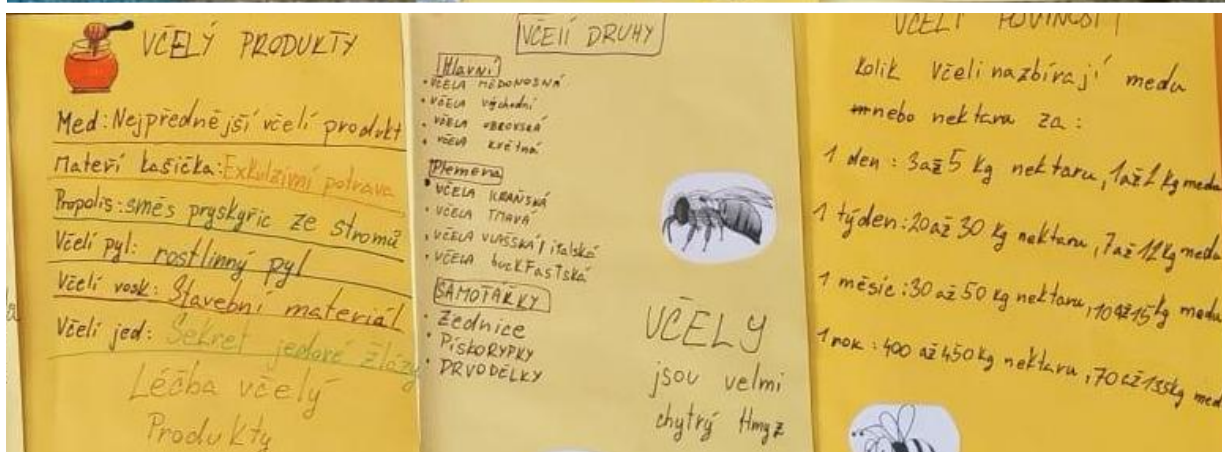 VČELÝ PRODUKTY
Med: Nejpřednější včelí produkt
Mateří kašička: Exkulzivní potrava
Propolis: směs pryskyřic ze stromů
Včelí pyl: rostlinný pyl
Včelí vosk: Stavební materiál
Včelí jed: Sekret jedové žlázy
Léčba včelý
Produkty
VČElÍ DRUHY
Hlavní
• VČELA MEDONOSNÁ
• VČELA východní
• VČELA OBROVSKÁ
• VČELA květná
Plemena
• VČELA KRAŇSKÁ
• VČELA TMAVÁ
• VČELA VLAŠSKÁ/italská
• VČELA buckFasTská
SAMOTÁŘKY
• Zednice
• PískoRYPKY
• DRVODĚLKY
VČELY
jsou velmi
chytrý Hmyz
VČELÍ POVINOSTI
Kolik Včeli nazbírají medu
nebo nektaru za:
1 den: 3až 5 kg nektaru, 1až2 kg medu
1 týden: 20až 30 kg nektaru, 7až 12kg medu
1 měsíc: 30 až 50 kg nektaru, 10až15kg medu
1 rok: 400 až 450kg nektaru, 70až135kg med